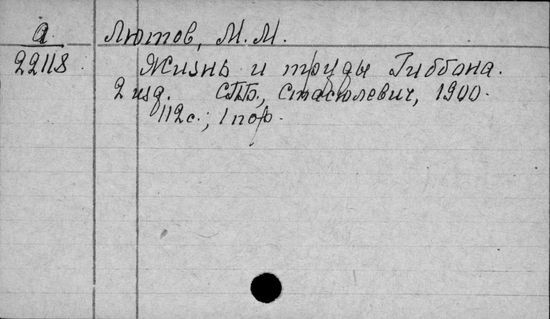 а Лютов, М. М.
22118 Жизнь и труды Гиббона.
2 изд. СПБ., Стасюлевич, 1900.
112 с.; 1 пор.